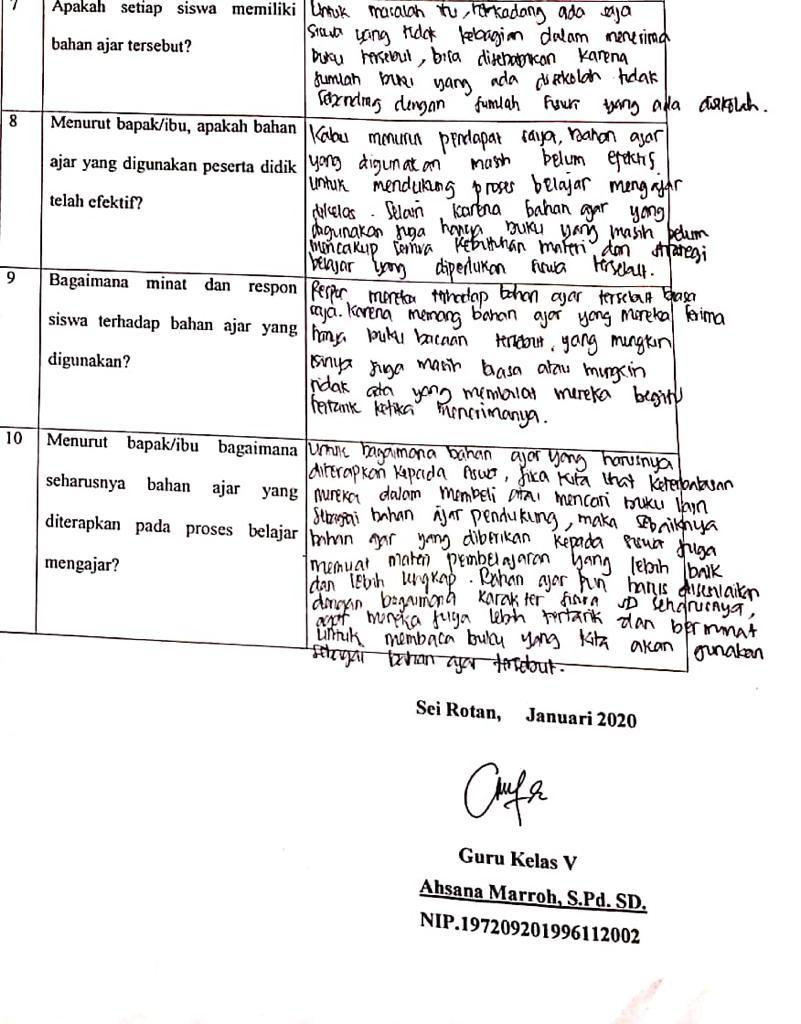 7 Apakah setiap siswa memiliki
bahan ajar tersebut?
Untuk masalah itu, terkadang ada saja
siswa yang tidak kebagian dalam menerima
buku tersebut, bisa disebabkan karena
jumlah buku yang ada disekolah tidak
sebanding dengan jumlah siswa yang ada disekolah.
8 Menurut bapak/ibu, apakah bahan
ajar yang digunakan peserta didik
telah efektif?
Kalau menurut pendapat saya, bahan ajar
yang digunakan masih belum efektif
untuk mendukung proses belajar mengajar
dikelas. Selain karena bahan ajar yang
digunakan juga hanya buku yang masih belum
mencakup semua kebutuhan materi dan strategi
belajar yang diperlukan siswa tersebut.
9 Bagaimana minat dan respon
siswa terhadap bahan ajar yang
digunakan?
Respon mereka terhadap bahan ajar tersebut biasa
saja. Karena memang bahan ajar yang mereka terima
hanya buku bacaan tersebut, yang mungkin
isinya juga masih biasa atau mungkin
tidak ada yang membuat mereka begitu
tertarik ketika menerimanya.
10 Menurut bapak/ibu bagaimana
seharusnya bahan ajar yang
diterapkan pada proses belajar
mengajar?
Untuk bagaimana bahan ajar yang harusnya
diterapkan kepada siswa, jika kita lihat keterbatasan
mereka dalam membeli atau mencari buku lain
sebagai bahan ajar pendukung, maka sebaiknya
bahan ajar yang diberikan kepada siswa juga
memuat materi pembelajaran yang lebih baik
dan lebih lengkap. Bahan ajar pun harus disesuaikan
dengan bagaimana karakter siswa SD seharusnya,
agar mereka juga lebih tertarik dan berminat
untuk membaca buku yang kita akan gunakan
sebagai bahan ajar tersebut.
Sei Rotan, Januari 2020
Guru Kelas V
Ahsana Marroh, S.Pd. SD.
NIP.197209201996112002